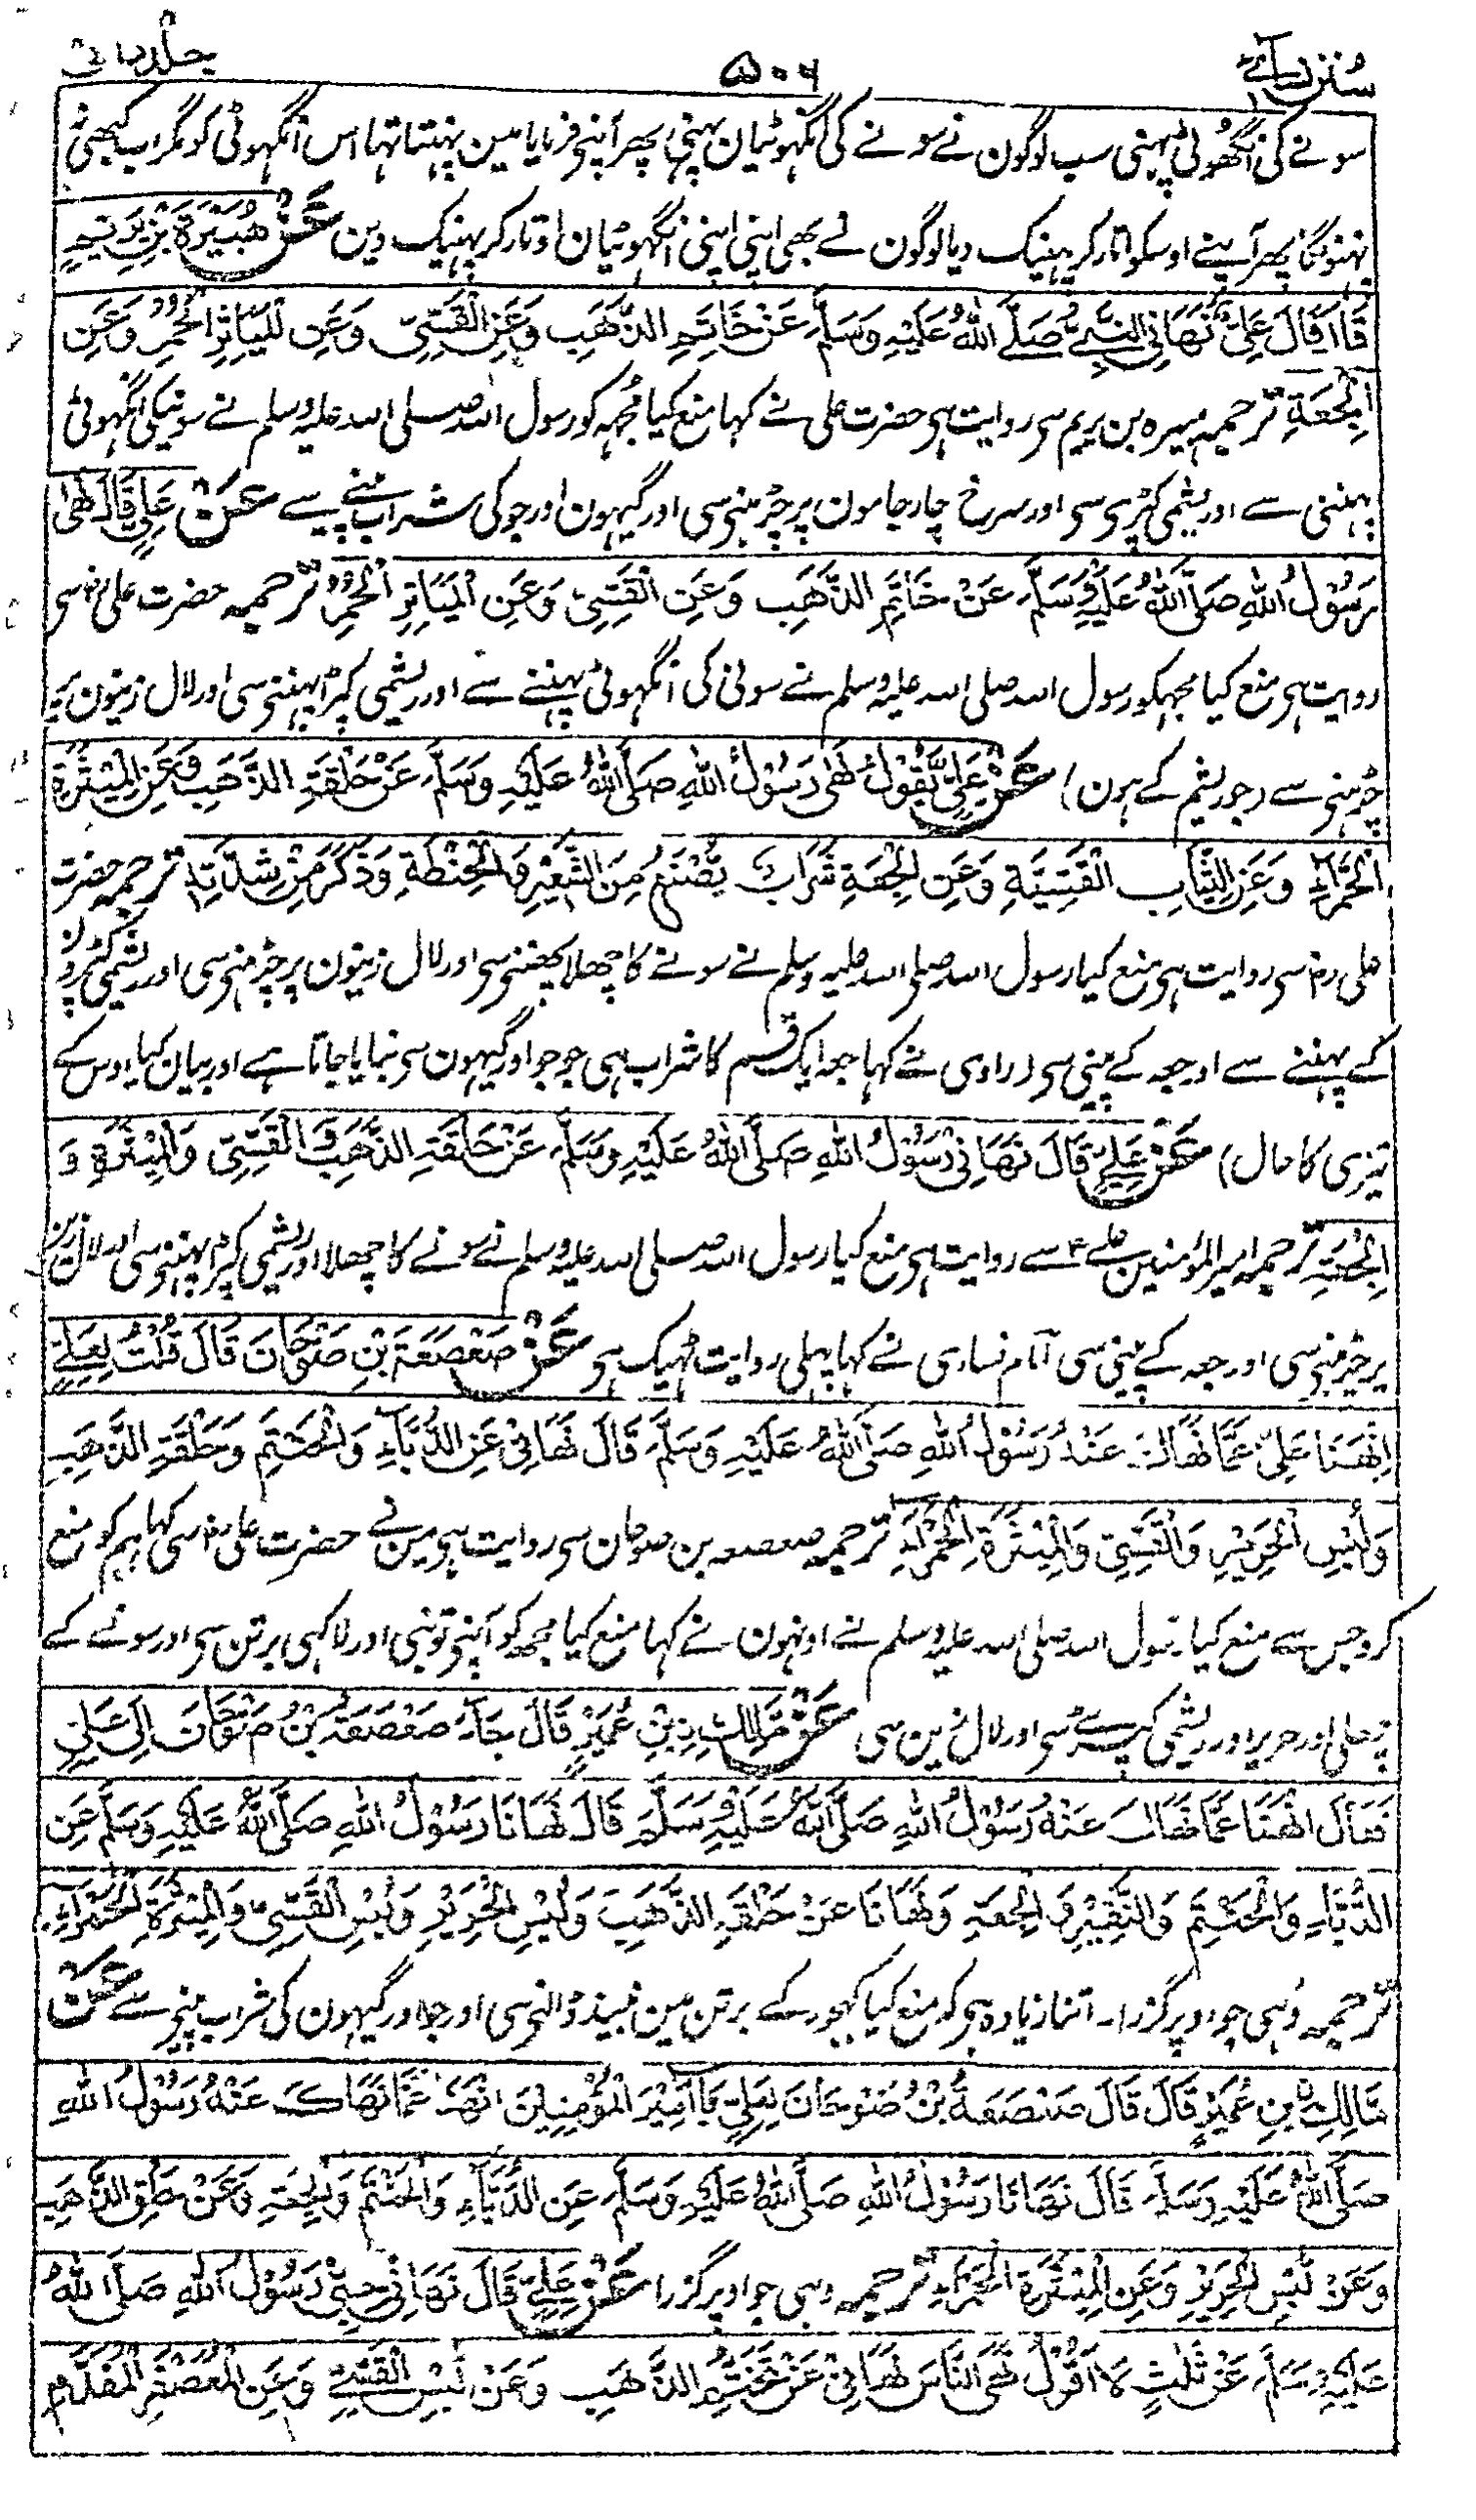 سنن نسائی ۵۰۶ جلد ثانی
سونے کی انگھوٹی پہنی سب لوگون نے سونے کی انگہوٹیان پہنی پھر آپنے فرمایا مین پہنتا تہا اس انگہوٹی کو مگر اب کبھی نہ
پہنونگا پھر آپنے اوسکو اتار کر پہینک دیا لوگون نے بھی اپنی اپنی انگہوٹیان اوتار کر پہینک دین عَنْ هُبَيْرَةَ بْنِ يَرِيمٍ
قَالَ قَالَ عَلِيٌّ نَهَانِي النَّبِيُّ صَلَّى اللهُ عَلَيْهِ وَسَلَّمَ عَنْ خَاتَمِ الذَّهَبِ وَعَنِ الْقَسِّيِّ وَعَنِ الْمَيَاثِرِ الْحُمُرِ وَعَنِ
الْجِعَةِ ترجمہ ہبیرہ بن یریم سی روایت ہی حضرت علی نے کہا منع کیا مجہہ کو رسول اللہ صلی اللہ علیہ وسلم نے سونیکی انگہوٹی
پہننی سے اور ریشمی کپڑی سی اور سرخ چارجامون پر چڑہنی سی اور گیہون اور جو کی شراب پینے سے عَنْ عَلِيٍّ قَالَ نَهَى
رَسُوْلُ اللهِ صَلَّى اللهُ عَلَيْهِ وَسَلَّمَ عَنْ خَاتَمِ الذَّهَبِ وَعَنِ الْقَسِّيِّ وَعَنِ الْمَيَاثِرِ الْحُمُرِ ترجمہ حضرت علی رض سی
روایت ہی منع کیا مجہکو رسول اللہ صلی اللہ علیہ وسلم نے سونی کی انگہوٹی پہننے سے اور ریشمی کپڑا پہننی سی اور لال زینون پر
چڑہنی سے (جو ریشم کے ہون) عَنْ عَلِيٍّ يَقُوْلُ نَهَى رَسُوْلُ اللهِ صَلَّى اللهُ عَلَيْهِ وَسَلَّمَ عَنْ حَلْقَةِ الذَّهَبِ وَعَنِ الْمِيْثَرَةِ
الْحَمْرَاءِ وَعَنِ الثِّيَابِ الْقَسِّيَّةِ وَعَنِ الْجِعَةِ شَرَابٌ يُصْنَعُ مِنَ الشَّعِيْرِ وَالْحِنْطَةِ وَذَكَرَ مِنْ شِدَّتِهِ ترجمہ حضرت
علی رض سی روایت ہی منع کیا رسول اللہ صلی اللہ علیہ وسلم نے سونے کا چھلا پہننی سی اور لال زینون پر چڑہنی سی اور ریشمی کپڑون
کے پہننے سے اور جعہ کے پینی سی (راوی نے کہا جعہ ایک قسم کا شراب ہی جو جو اور گیہون سی بنایا جاتا ہے اور بیان کیا اوس کے
تیزی کا حال) عَنْ عَلِيٍّ قَالَ نَهَانِيْ رَسُوْلُ اللهِ صَلَّى اللهُ عَلَيْهِ وَسَلَّمَ عَنْ حَلْقَةِ الذَّهَبِ وَالْقَسِّيِّ وَالْمِيْثَرَةِ وَ
الْجِعَةِ ترجمہ امیر المؤمنین علی سے روایت ہی منع کیا رسول اللہ صلی اللہ علیہ وسلم نے سونے کا چھلا اور ریشمی کپڑا پہننی سی اور لال زین
پر چڑہنی سی اور جعہ کے پینی سی امام نسائی نے کہا پہلی روایت ٹہیک ہی عَنْ صَعْصَعَةَ بْنِ صُوْحَانَ قَالَ قُلْتُ لِعَلِيٍّ
اِنْهَنَا عَمَّا نَهَاكَ عَنْهُ رَسُوْلُ اللهِ صَلَّى اللهُ عَلَيْهِ وَسَلَّمَ قَالَ نَهَانِيْ عَنِ الدُّبَّاءِ وَالْحَنْتَمِ وَحَلْقَةِ الذَّهَبِ
وَلُبْسِ الْحَرِيْرِ وَالْقَسِّيِّ وَالْمِيْثَرَةِ الْحَمْرَاءِ ترجمہ صعصعہ بن صوحان سی روایت ہی مین نے حضرت علی رض سی کہا ہم کو منع
کرو جس سے منع کیا رسول اللہ صلی اللہ علیہ وسلم نے اونہون نے کہا منع کیا مجھ کو آپنی تونبی اور لاکہی برتن سی اور سونے کے
چھلی اور حریر اور ریشمی کپڑے سی اور لال زین سی عَنْ مَالِكِ بْنِ عُمَيْرٍ قَالَ جَاءَ صَعْصَعَةُ بْنُ صُوْحَانَ اِلَى عَلِيٍّ
فَقَالَ انْهَنَا عَمَّا نَهَاكَ عَنْهُ رَسُوْلُ اللهِ صَلَّى اللهُ عَلَيْهِ وَسَلَّمَ قَالَ نَهَانَا رَسُوْلُ اللهِ صَلَّى اللهُ عَلَيْهِ وَسَلَّمَ عَنِ
الدُّبَّاءِ وَالْحَنْتَمِ وَالنَّقِيْرِ وَالْجِعَةِ وَنَهَانَا عَنْ حَلْقَةِ الذَّهَبِ وَلُبْسِ الْحَرِيْرِ وَلُبْسِ الْقَسِّيِّ وَالْمِيْثَرَةِ الْحَمْرَاءِ
ترجمہ وہی جو اوپر گزرا۔ اتنا زیادہ ہی کہ منع کیا کہجور کے برتن مین نبیذ ڈالنی سی اور جو اور گیہون کی شراب پینی سے عَنْ
مَالِكِ بْنِ عُمَيْرٍ قَالَ قَالَ صَعْصَعَةُ بْنُ صُوْحَانَ لِعَلِيٍّ يَا اَمِيْرَ الْمُؤْمِنِيْنَ انْهَنَا عَمَّا نَهَاكَ عَنْهُ رَسُوْلُ اللهِ
صَلَّى اللهُ عَلَيْهِ وَسَلَّمَ قَالَ نَهَانَا رَسُوْلُ اللهِ صَلَّى اللهُ عَلَيْهِ وَسَلَّمَ عَنِ الدُّبَّاءِ وَالْحَنْتَمِ وَالْجِعَةِ وَعَنْ حَلَقِ الذَّهَبِ
وَعَنْ لُبْسِ الْحَرِيْرِ وَعَنِ الْمِيْثَرَةِ الْحَمْرَاءِ ترجمہ وہی جو اوپر گزرا عَنْ عَلِيٍّ قَالَ نَهَانِيْ حِبِّيْ رَسُوْلُ اللهِ صَلَّى اللهُ
عَلَيْهِ وَسَلَّمَ عَنْ ثَلٰثٍ لَا اَقُوْلُ نَهَى النَّاسَ نَهَانِيْ عَنْ تَخَتُّمِ الذَّهَبِ وَعَنْ لُبْسِ الْقَسِّيِّ وَعَنِ الْمُعَصْفَرِ الْمُفَدَّمِ